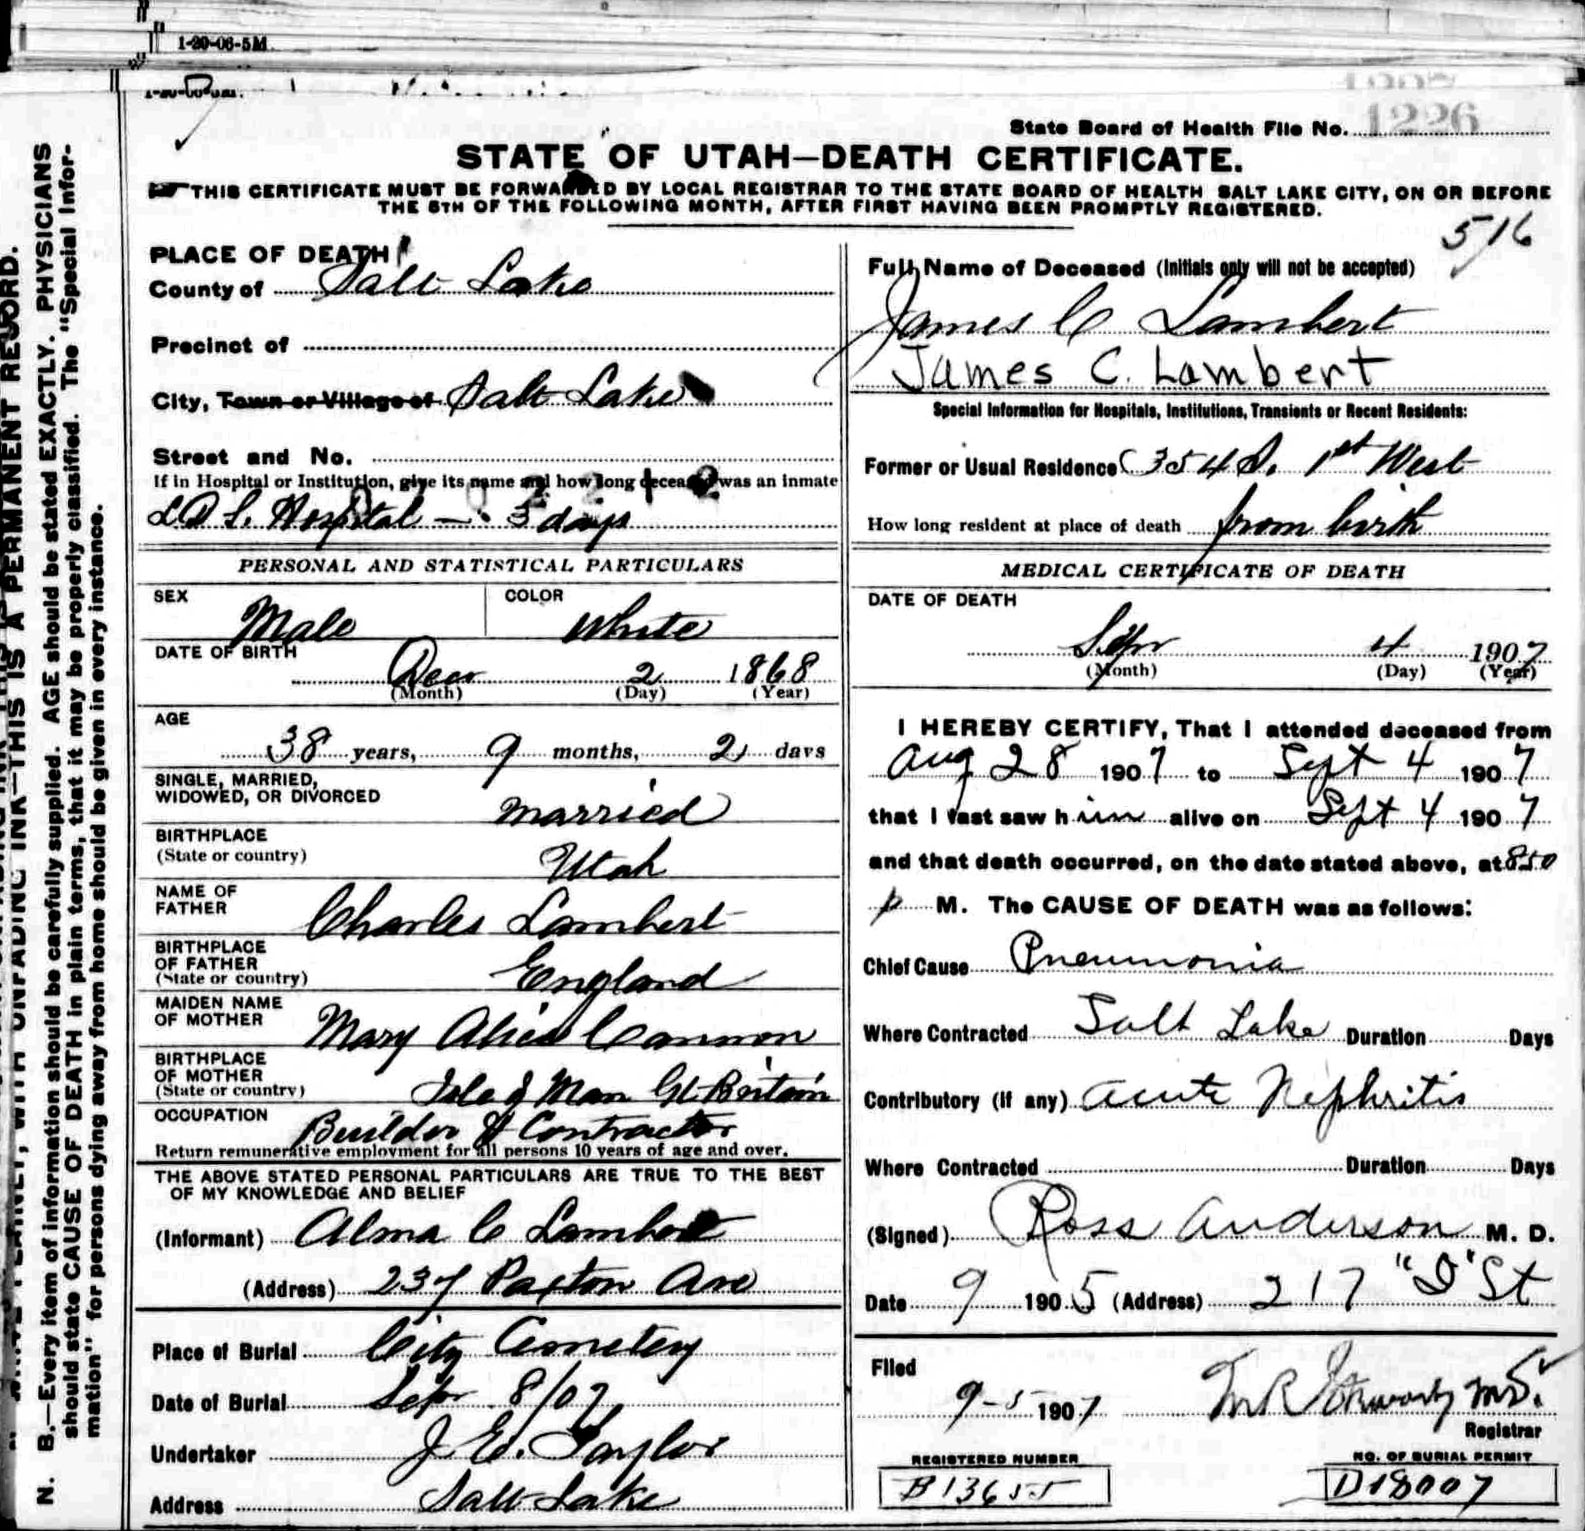 1-20-06-5M.
1226
State Board of Health File No.
STATE OF UTAH—DEATH CERTIFICATE.
THIS CERTIFICATE MUST BE FORWARDED BY LOCAL REGISTRAR TO THE STATE BOARD OF HEALTH SALT LAKE CITY, ON OR BEFORE
THE 5TH OF THE FOLLOWING MONTH, AFTER FIRST HAVING BEEN PROMPTLY REGISTERED.
516
PLACE OF DEATH
County of Salt Lake
Precinct of
City, Town or Village of Salt Lake
Street and No.
If in Hospital or Institution, give its name and how long deceased was an inmate
L D S. Hospital — 3 days
PERSONAL AND STATISTICAL PARTICULARS
SEX Male
COLOR White
DATE OF BIRTH
Dec 2 1868
(Month) (Day) (Year)
AGE
38 years, 9 months, 2 days
SINGLE, MARRIED,
WIDOWED, OR DIVORCED
married
BIRTHPLACE
(State or country)
Utah
NAME OF
FATHER
Charles Lambert
BIRTHPLACE
OF FATHER
(State or country)
England
MAIDEN NAME
OF MOTHER
Mary Alice Cannon
BIRTHPLACE
OF MOTHER
(State or country)
Isle of Man Gt Britain
OCCUPATION
Builder & Contractor
Return remunerative employment for all persons 10 years of age and over.
THE ABOVE STATED PERSONAL PARTICULARS ARE TRUE TO THE BEST
OF MY KNOWLEDGE AND BELIEF
(Informant) Alma C Lambert
(Address) 237 Paxton Ave
Place of Burial City Cemetery
Date of Burial Sept 8/07
Undertaker J. E. Taylor
Address Salt Lake
Full Name of Deceased (Initials only will not be accepted)
James C Lambert
James C. Lambert
Special Information for Hospitals, Institutions, Transients or Recent Residents:
Former or Usual Residence 354 S. 1st West
How long resident at place of death from birth
MEDICAL CERTIFICATE OF DEATH
DATE OF DEATH
Sep 4 1907
(Month) (Day) (Year)
I HEREBY CERTIFY, That I attended deceased from
Aug 28 1907 to Sept 4 1907
that I last saw him alive on Sept 4 1907
and that death occurred, on the date stated above, at 8 50
p M. The CAUSE OF DEATH was as follows:
Chief Cause Pneumonia
Where Contracted Salt Lake Duration Days
Contributory (if any) acute Nephritis
Where Contracted Duration Days
(Signed) Ross Anderson M. D.
Date 9 1905 (Address) 217 "D" St
Filed
9-5 1907
Registrar
REGISTERED NUMBER
B13655
NO. OF BURIAL PERMIT
D18007
N. B.—Every item of information should be carefully supplied. AGE should be stated EXACTLY. PHYSICIANS
should state CAUSE OF DEATH in plain terms, that it may be properly classified. The "Special Infor-
mation" for persons dying away from home should be given in every instance.
WITH UNFADING INK—THIS IS A PERMANENT RECORD.